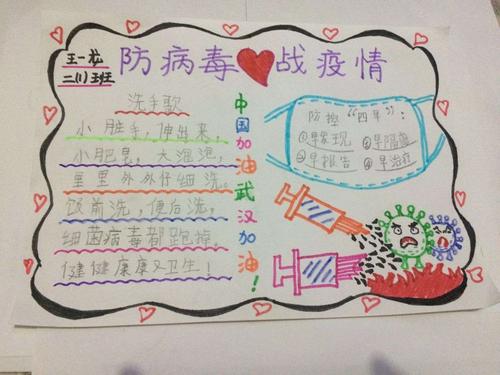 王一龙
二(1)班
防病毒 战疫情
洗手歌
小脏手,伸出来,
小肥皂,大泡泡,
里里外外仔细洗。
饭前洗,便后洗,
细菌病毒都跑掉,
健健康康又卫生!
中国加油武汉加油!
防控“四早”:
①早发现 ②早隔离
③早报告 ④早治疗